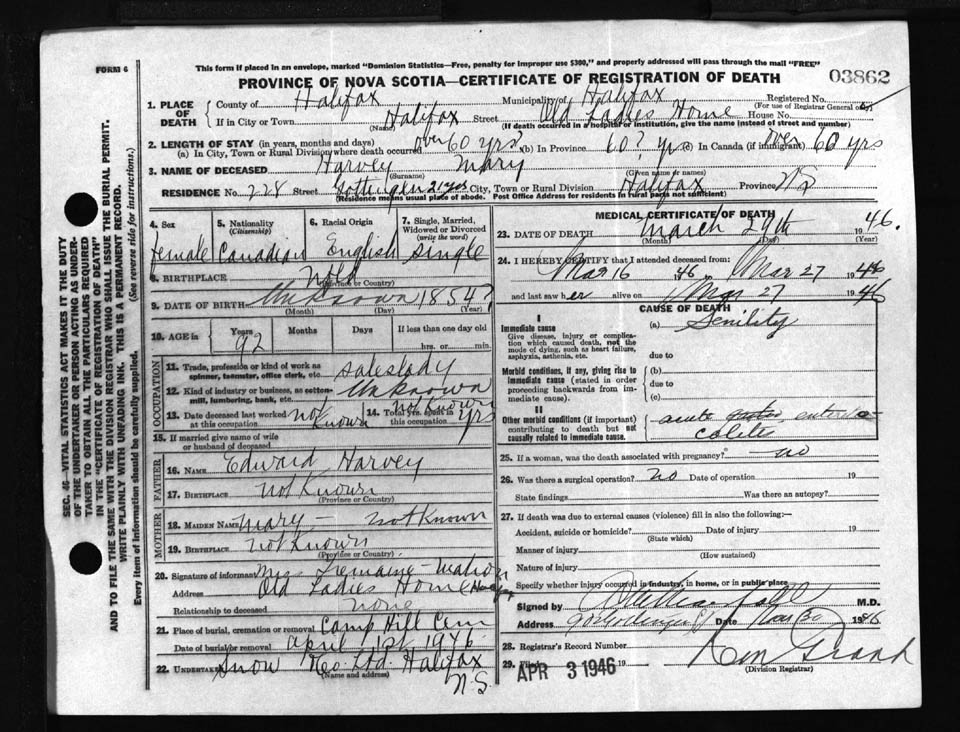 This form if placed in an envelope, marked "Dominion Statistics—Free, penalty for improper use $300," and properly addressed will pass through the mail "FREE"
FORM 6
PROVINCE OF NOVA SCOTIA—CERTIFICATE OF REGISTRATION OF DEATH
03862
1. PLACE OF DEATH
County of Halifax Municipality of Halifax Registered No.
(For use of Registrar General only)
If in City or Town Halifax Street Old Ladies Home House No.
(Name) (If death occurred in a hospital or institution, give the name instead of street and number)
2. LENGTH OF STAY (in years, months and days)
(a) In City, Town or Rural Division where death occurred over 60 yrs? (b) In Province 60? yrs (c) In Canada (if immigrant) over 60 yrs
3. NAME OF DECEASED Harvey Mary
(Surname) (Given name or names)
RESIDENCE No. 228 Street Gottingen 21 yrs City, Town or Rural Division Halifax Province NS
(Residence means usual place of abode. Post Office Address for residents in rural parts not sufficient)
4. Sex female
5. Nationality (Citizenship) Canadian
6. Racial Origin English
7. Single, Married, Widowed or Divorced (write the word) Single
8. BIRTHPLACE Nfld
(Province or Country)
9. DATE OF BIRTH Unknown 1854?
(Month) (Day) (Year)
10. AGE in Years 92 Months Days If less than one day old
hrs. or min.
OCCUPATION
11. Trade, profession or kind of work as spinner, teamster, office clerk, etc. saleslady
12. Kind of industry or business, as cotton-mill, lumbering, bank, etc. Unknown
13. Date deceased last worked at this occupation not known
14. Total yrs. spent in this occupation not known yrs
15. If married give name of wife or husband of deceased
FATHER
16. NAME Edward Harvey
17. BIRTHPLACE not Known
(Province or Country)
MOTHER
18. MAIDEN NAME Mary — not Known
19. BIRTHPLACE not Known
(Province or Country)
20. Signature of informant Mrs. Matron
Address Old Ladies Home
Relationship to deceased none
21. Place of burial, cremation or removal Camp Hill Cem
Date of burial or removal April 1st 1946
22. UNDERTAKER Snow Co Ltd. Halifax
(Name and address) N.S.
MEDICAL CERTIFICATE OF DEATH
23. DATE OF DEATH March 29th 1946.
(Month) (Day) (Year)
24. I HEREBY CERTIFY that I attended deceased from:
Mar 16 46 to Mar 27 1946
and last saw her alive on Mar 27 1946
CAUSE OF DEATH
I
Immediate cause (a) Senility
Give disease, injury or complication which caused death, not the mode of dying, such as heart failure, asphyxia, asthenia, etc.
due to
Morbid conditions, if any, giving rise to immediate cause (stated in order proceeding backwards from immediate cause). (b)
due to
(c)
II
Other morbid conditions (if important) contributing to death but not causally related to immediate cause. acute entero-
colitis
25. If a woman, was the death associated with pregnancy? no
26. Was there a surgical operation? no Date of operation 19
State findings Was there an autopsy?
27. If death was due to external causes (violence) fill in also the following:—
Accident, suicide or homicide? Date of injury 19
(State which)
Manner of injury
(How sustained)
Nature of injury
Specify whether injury occurred in industry, in home, or in public place
Signed by M.D.
Address Date 30 1946
28. Registrar's Record Number
29. Filed APR 3 1946 19
(Division Registrar)
SEC. 46—VITAL STATISTICS ACT MAKES IT THE DUTY
OF THE UNDERTAKER OR PERSON ACTING AS UNDER-
TAKER TO OBTAIN ALL THE PARTICULARS REQUIRED
IN THE "CERTIFICATE OF REGISTRATION OF DEATH"
AND TO FILE THE SAME WITH THE DIVISION REGISTRAR WHO SHALL ISSUE THE BURIAL PERMIT.
WRITE PLAINLY WITH UNFADING INK. THIS IS A PERMANENT RECORD.
Every item of information should be carefully supplied. (See reverse side for instructions.)